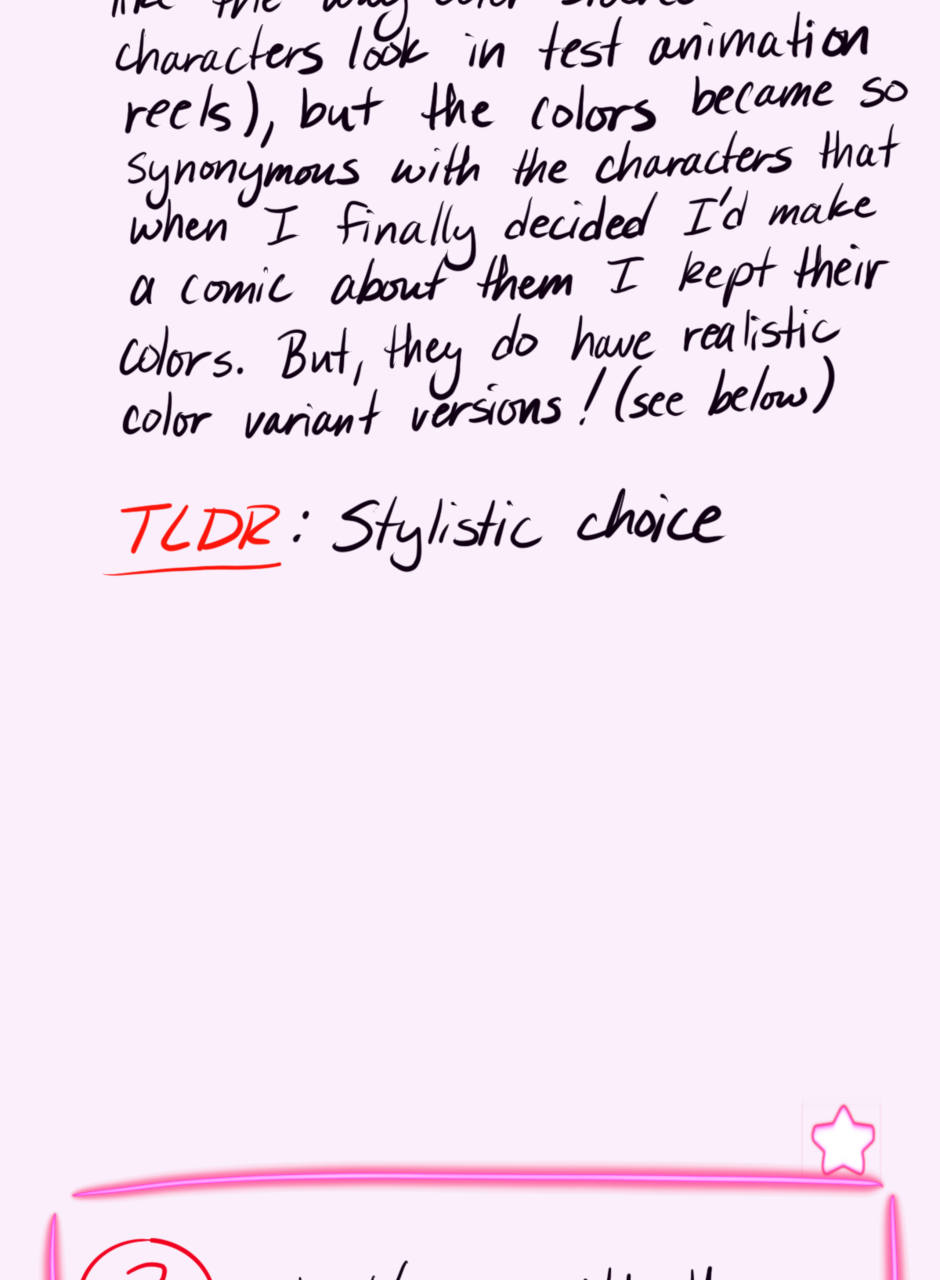 the way color
characters look in test animation
reels), but the colors became so
synonymous with the characters that
when I finally decided I'd make
a comic about them I kept their
colors. But, they do have realistic
color variant versions! (see below)
TLDR: Stylistic choice